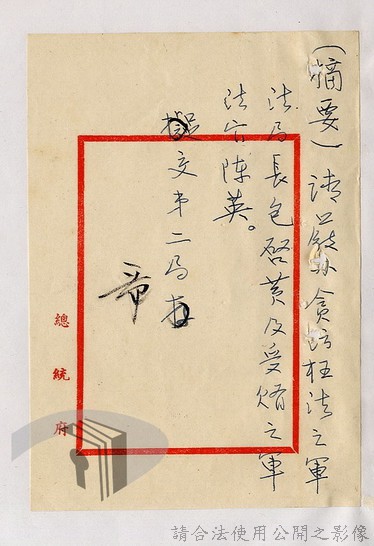 (摘要)請嚴辦貪污枉法之軍
法局長包啓黃及受賄之軍
法官陳英。
擬交第二局
總統府
請合法使用公開之影像